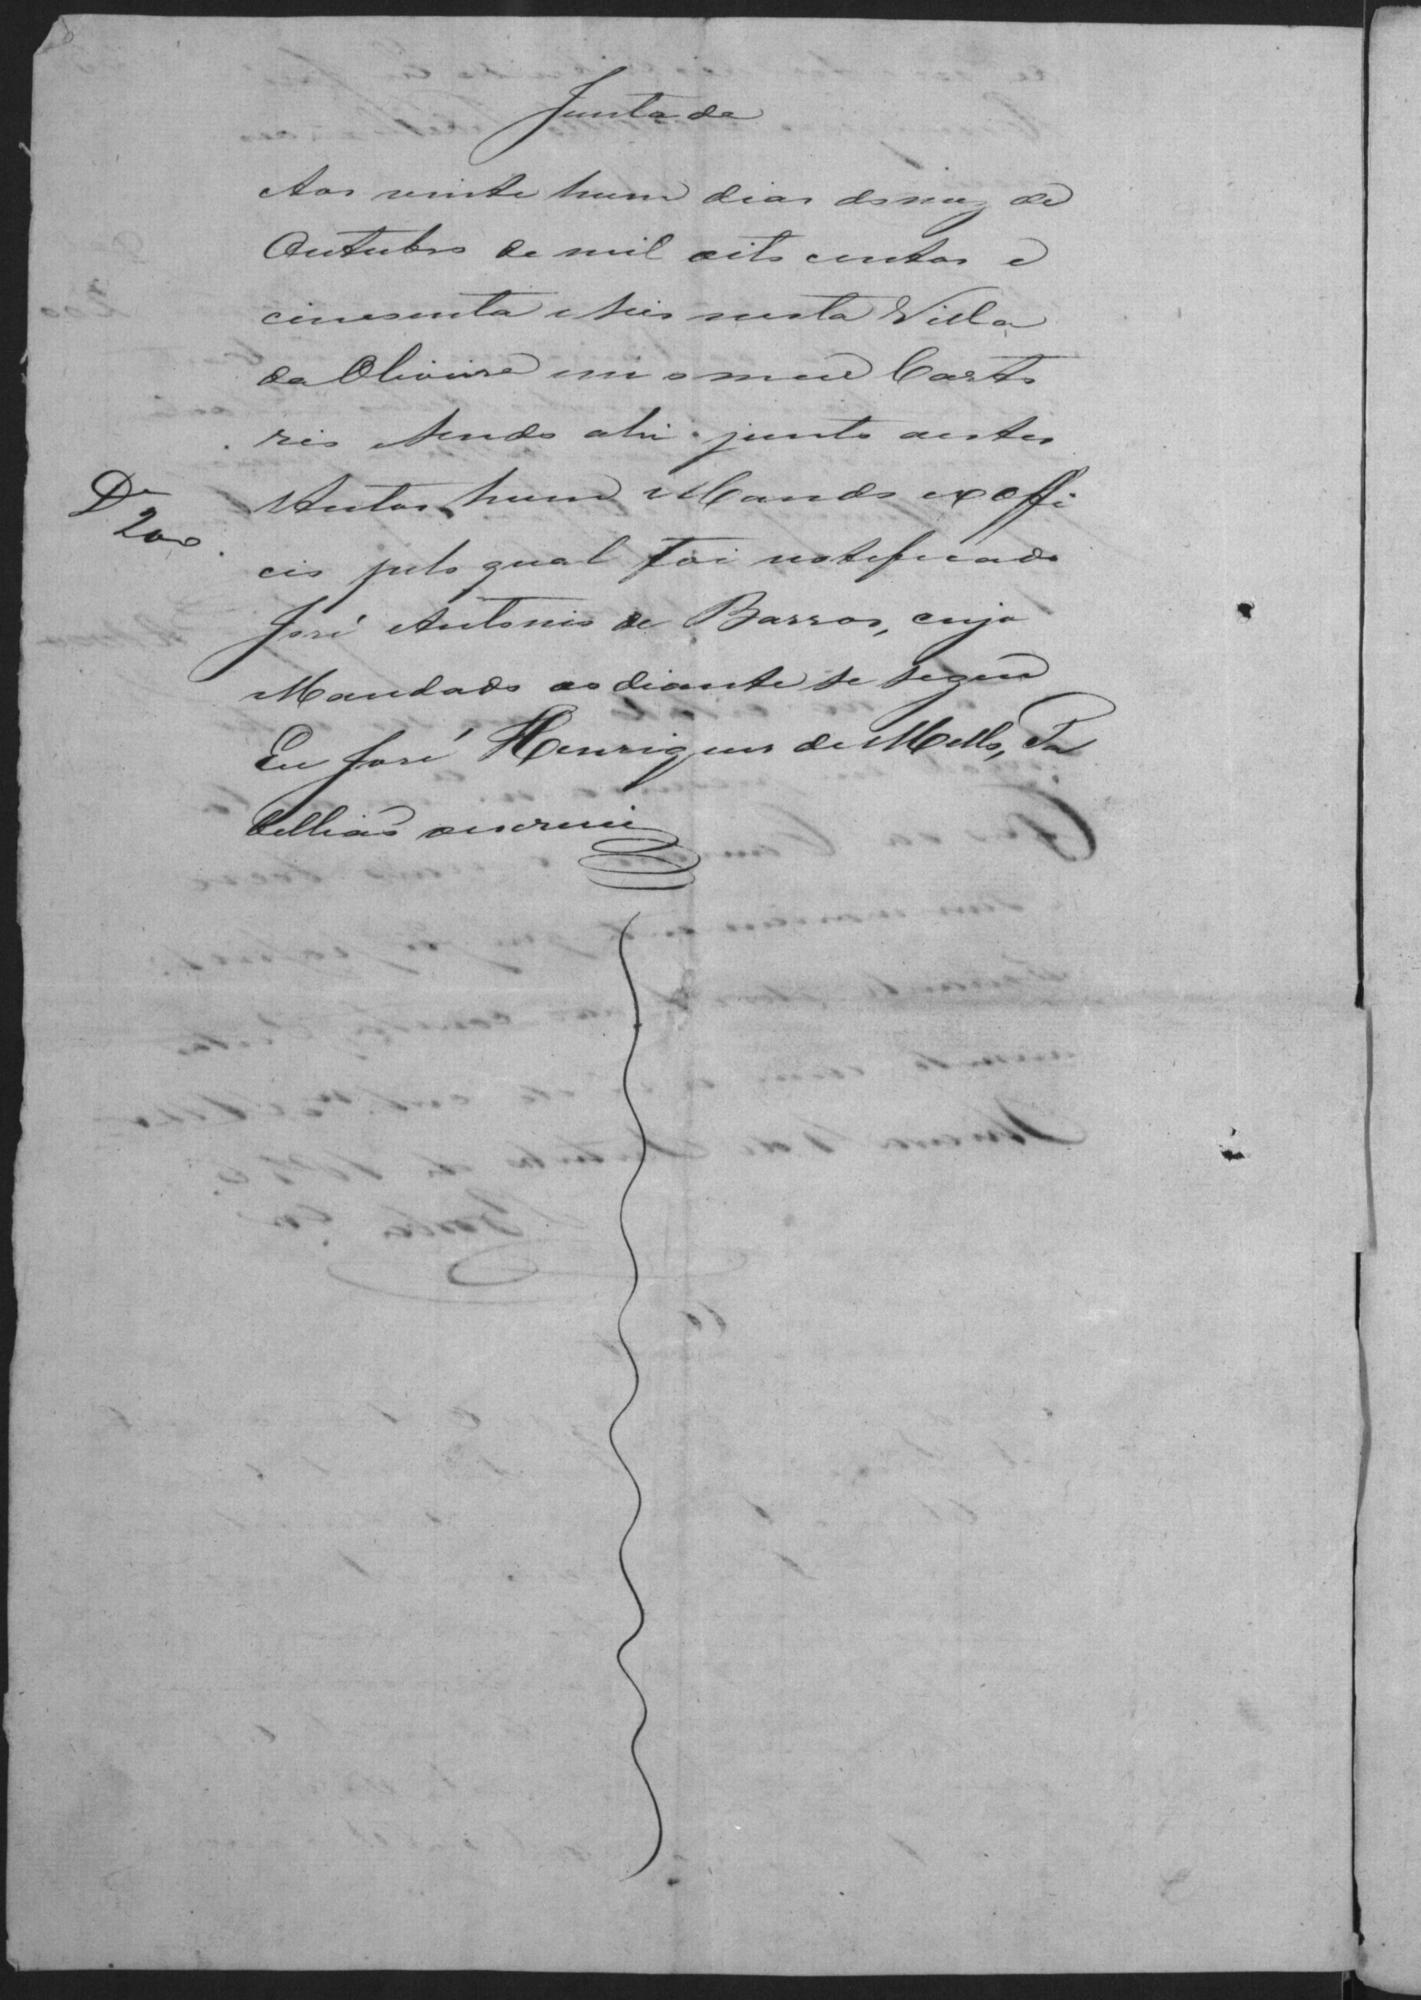 Juntada
Aos vinte hum dias do mez de
Outubro de mil oito centos e
cincoenta e seis nesta Villa
da Oliveira em o meu Carto
rio e sendo ahi junto a estes
Autos hum Mando ex offi
cio pelo qual foi notificado
José Antonio de Barros, cujo
Mandado ao diante se segue
Eu José Henriques de Mello, Ta
bellião o escrevi
Dr
200